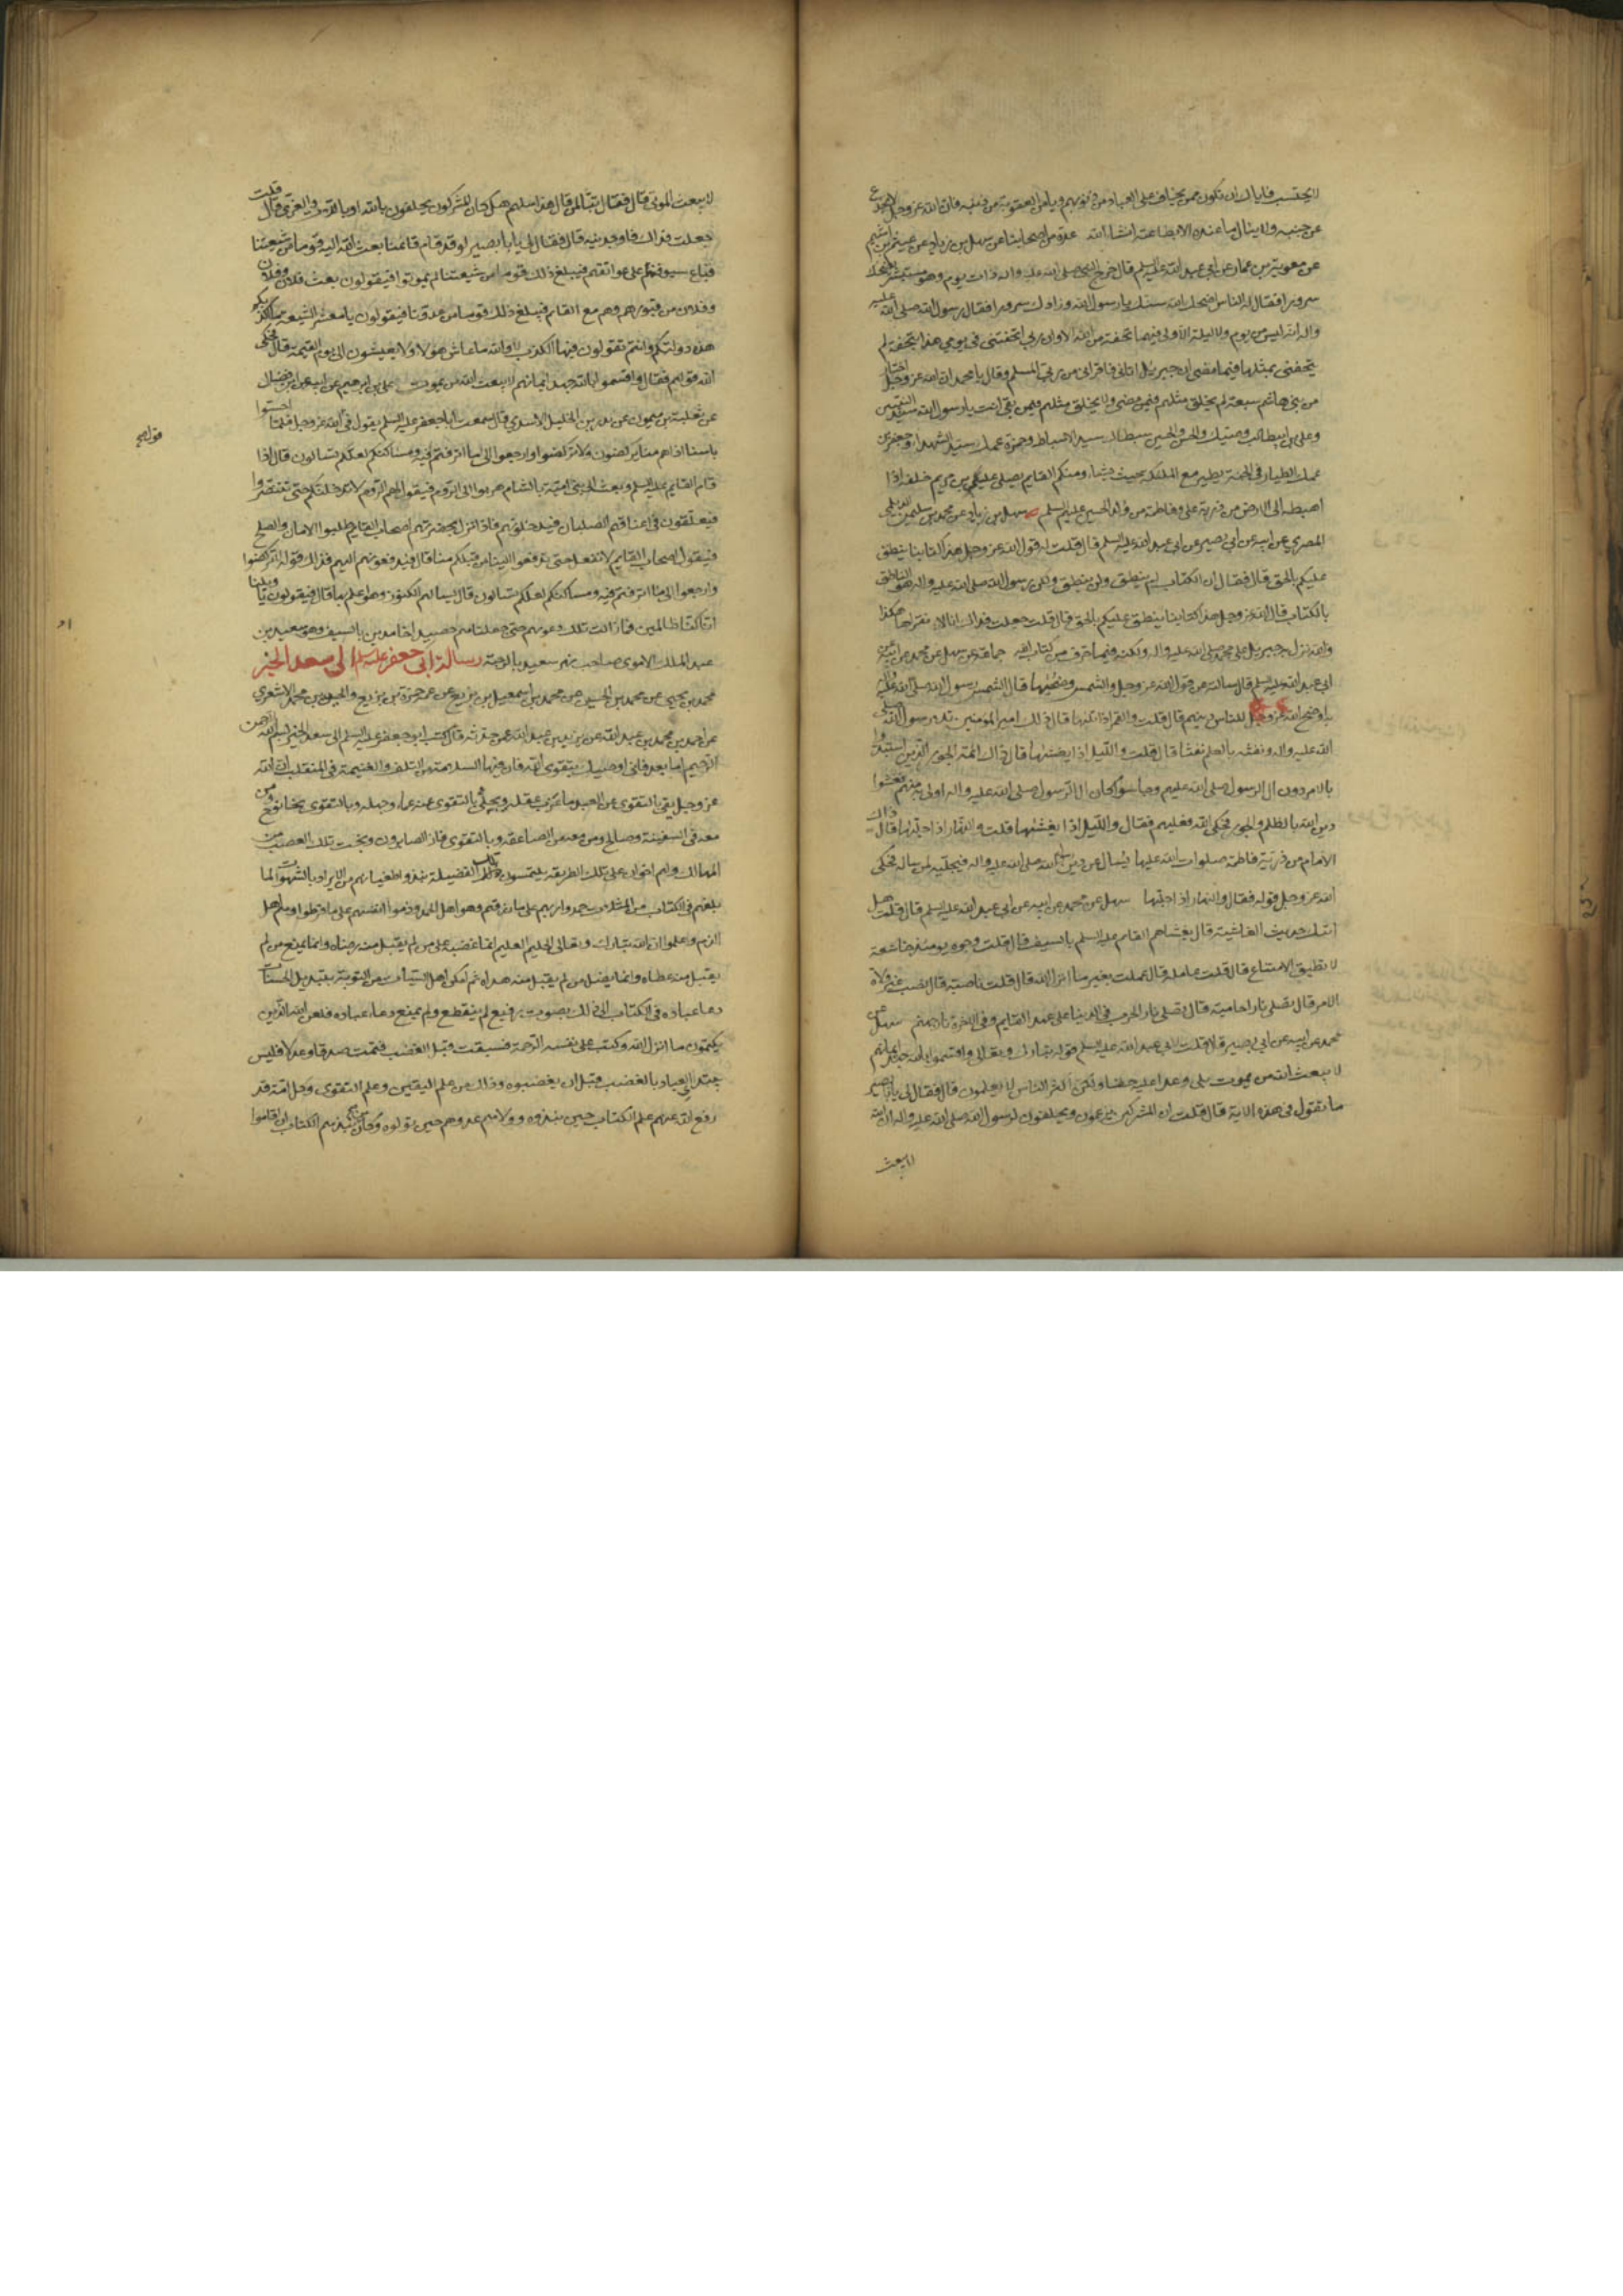 لا يحتسب فاياك ان تكون ممن يخاف على العباد من ذنوبهم ويامن العقوبة من ذنبه فان الله عز وجل لا يخدع
عن جنته ولا ينال ما عنده الا بطاعته انشا الله عدة من اصحابنا عن سهل بن زياد عن هيثم بن اشيم
عن معوية بن عمار عن ابي عبد الله عليه السلم قال خرج النبي صلى الله عليه واله ذات يوم وهو مستبشر يضحك
سرورا فقال له الناس اضحك الله سنك يا رسول الله وزادك سرورا فقال رسول الله صلى الله عليه
واله انه ليس من يوم ولا ليلة الا ولى فيهما تحفة من الله الا وان ربي اتحفني في يومي هذا بتحفة لم
يتحفني بمثلها فيما مضى ان جبرئيل اتاني فاقراني من ربي السلم وقال يا محمد ان الله عز وجل اختار
من بني هاشم سبعة لم يخلق مثلهم فيمن مضى ولا يخلق مثلهم فيمن بقي انت يا رسول الله سيد النبيين
وعلي بن ابيطالب وصيك والحسن والحسين سبطاك سيدا الاسباط وحمزة عمك سيد الشهداء وجعفر بن
عمك الطيار في الجنة يطير مع الملئكة حيث يشاء ومنكم القايم يصلي عيسى بن مريم خلفه اذا
اهبطه الى الارض من ذرية علي وفاطمة من ولد الحسين عليهم السلم سهل بن زياد عن محمد بن سليمن الديلمي
المصري عن ابيه عن ابي بصير عن ابي عبد الله عليه السلم قال قلت له قول الله عز وجل هذا كتابنا ينطق
عليكم بالحق قال فقال ان الكتاب لم ينطق ولن ينطق ولكن رسول الله صلى الله عليه واله هو الناطق
بالكتاب قال الله عز وجل هذا كتابنا ينطق عليكم بالحق قال قلت جعلت فداك انا لا نقراها هكذا
والله نزل جبرئيل على محمد صلى الله عليه واله ولكنه فيما حرف من كتاب الله جماعة عن سهل عن محمد عن ابيه عن
ابي عبد الله عليه السلم قال سالته عن قول الله عز وجل والشمس وضحيها قال الشمس رسول الله صلى الله عليه واله
به اوضح الله عز وجل للناس دينهم قال قلت والقمر اذا تليها قال ذلك امير المؤمنين تلا رسول الله صلى
الله عليه واله ونفثه بالعلم نفثا قال قلت والليل اذا يغشيها قال ذاك ائمة الجور الذين استبدوا
بالامر دون ال الرسول صلى الله عليهم وجلسوا مجلسا كان ال الرسول صلى الله عليه واله اولى به منهم فغشوا
دين الله بالظلم والجور فحكى الله فعلهم فقال والليل اذا يغشيها قلت والنهار اذا جليها قال ذاك
الامام من ذرية فاطمة صلوات الله عليها يسال عن دين رسول الله صلى الله عليه واله فيجليه لمن ساله فحكى
الله عز وجل قوله فقال والنهار اذا جليها سهل عن محمد عن ابيه عن ابي عبد الله عليه السلم قال قلت هل
اتيك حديث الغاشية قال يغشاهم القايم عليه السلم بالسيف قال قلت وجوه يومئذ خاشعة
لا تطيق الامتناع قال قلت عاملة قال عملت بغير ما انزل الله قال قلت ناصبة قال نصبت غير ولاة
الامر قال تصلى نارا حامية قال تصلى نار الحرب في الدنيا على عهد القايم وفي الاخرة نار جهنم سهل عن
محمد عن ابيه عن ابي بصير قال قلت لابي عبد الله عليه السلم قوله تبارك وتعالى واقسموا بالله جهد ايمانهم
لا يبعث الله من يموت بلى وعدا عليه حقا ولكن اكثر الناس لا يعلمون قال فقال لي يا ابا بصير
ما تقول في هذه الاية قال قلت ان المشركين يزعمون ويحلفون لرسول الله صلى الله عليه واله ان الله
لا يبعث
لا يبعث الموتى قال فقال تبا لمن قال هذا سلهم هل كان المشركون يحلفون بالله او باللات والعزى قال قلت
جعلت فداك فاوجدنيه قال فقال لي يا ابا بصير لو قد قام قائمنا بعث الله اليه قوما من شيعتنا
قباع سيوفهم على عواتقهم فيبلغ ذلك قوما من شيعتنا لم يموتوا فيقولون بعث فلان وفلان
وفلان من قبورهم وهم مع القايم فيبلغ ذلك قوما من عدونا فيقولون يا معشر الشيعة ما اكذبكم
هذه دولتكم وانتم تقولون فيها الكذب لا والله ما عاش هؤلا ولا يعيشون الى يوم القيمة قال فحكى
الله قولهم فقال واقسموا بالله جهد ايمانهم لا يبعث الله من يموت علي بن ابرهيم عن ابيه عن ابن فضال
عن ثعلبة بن ميمون عن بدر بن الخليل الاسدي قال سمعت ابا جعفر عليه السلم يقول في قول الله عز وجل فلما احسوا
باسنا اذا هم منها يركضون لا تركضوا وارجعوا الى ما اترفتم فيه ومساكنكم لعلكم تسالون قال اذا
قام القايم عليه السلم وبعث الى بني امية بالشام هربوا الى الروم فيقول لهم الروم لا ندخلنكم حتى تتنصروا
فيعلقون في اعناقهم الصلبان فيدخلونهم فاذا نزل بحضرتهم اصحاب القايم طلبوا الامان والصلح
فيقول اصحاب القايم لا نفعل حتى تدفعوا الينا من قبلكم منا قال فيدفعونهم اليهم فذلك قوله لا تركضوا
وارجعوا الى ما اترفتم فيه ومساكنكم لعلكم تسالون قال يسالهم الكنوز وهو اعلم بها قال فيقولون يا ويلنا
انا كنا ظالمين فما زالت تلك دعويهم حتى جعلناهم حصيدا خامدين بالسيف وهو سعيد بن
عبد الملك الاموي صاحب نهر سعيد بالرحبة رسالة ابي جعفر عليه السلم الى سعد الخير
محمد بن يحيى عن محمد بن الحسين عن محمد بن اسمعيل بن بزيع عن عمه حمزة بن بزيع والحسين بن محمد الاشعري
عن احمد بن محمد بن عبد الله عن يزيد بن عبد الله عمن حدثه قال كتب ابو جعفر عليه السلم الى سعد الخير بسم الله الرحمن
الرحيم اما بعد فاني اوصيك بتقوى الله فان فيها السلامة من التلف والغنيمة في المنقلب ان الله
عز وجل يقي بالتقوى عن العبد ما عزب عنه عقله ويجلي بالتقوى عنه عماه وجهله وبالتقوى نجا نوح ومن
معه في السفينة وصالح ومن معه من الصاعقة وبالتقوى فاز الصابرون ونجت تلك العصب من
المهالك ولهم اخوان على تلك الطريقة يلتمسون تلك الفضيلة نبذوا طغيانهم من الايراد بالشهوات لما
بلغهم في الكتاب من المثلات حمدوا ربهم على ما رزقهم وهو اهل الحمد وذموا انفسهم على ما فرطوا وهم اهل
الذم واعلموا ان الله تبارك وتعالى الحليم العليم انما غضبه على من لم يقبل منه رضاه وانما يمنع من لم
يقبل منه عطاه وانما يضل من لم يقبل منه هداه ثم امكن اهل السيئات من التوبة بتبديل الحسنات
دعا عباده في الكتاب الى ذلك بصوت رفيع لم ينقطع ولم يمنع دعاء عباده فلعن الله الذين
يكتمون ما انزل الله وكتب على نفسه الرحمة فسبقت قبل الغضب فتمت صدقا وعدلا فليس
يبتدئ العباد بالغضب قبل ان يغضبوه وذلك من علم اليقين وعلم التقوى وكل امة قد
رفع الله عنهم علم الكتاب حين نبذوه وولاهم عدوهم حين تولوه وكان من نبذهم الكتاب ان اقاموا